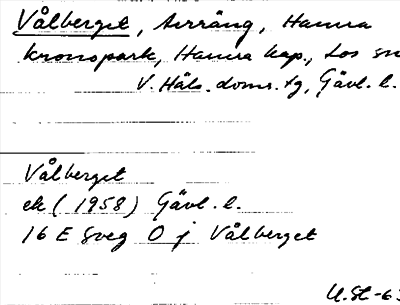 Vålberget, terräng, Hamra
kronopark, Hamra kap., Los sn
V. Häls. doms. tg, Gävl. l.
Vålberget
ek (1958) Gävl. l.
16 E Sveg O j Vålberget
U.St-63